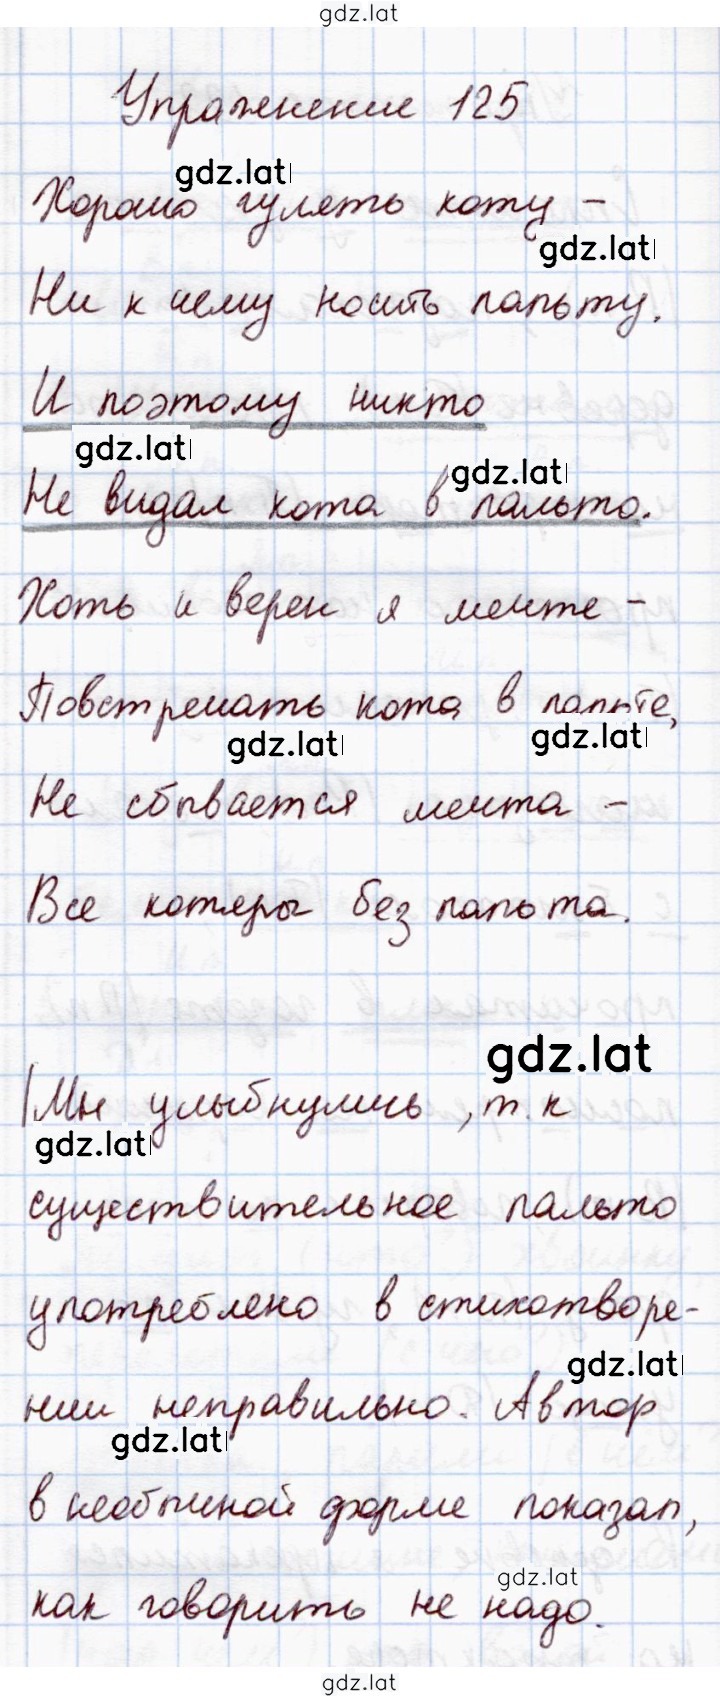 gdz.lat
Упражнение 125
gdz.lat
Хорошо гулять коту –
gdz.lat
Ни к чему носить пальту.
И поэтому никто
gdz.lat
gdz.lat
Не видал кота в пальто.
Хоть и верен я мечте –
Повстречать кота в пальте,
gdz.lat
gdz.lat
Не сбывается мечта –
Все котяры без пальта.
gdz.lat
Мы улыбнулись, т. к
gdz.lat
существительное пальто
употреблено в стихотворе-
gdz.lat
нии неправильно. Автор
gdz.lat
в необычной форме показал,
gdz.lat
как говорить не надо.
gdz.lat